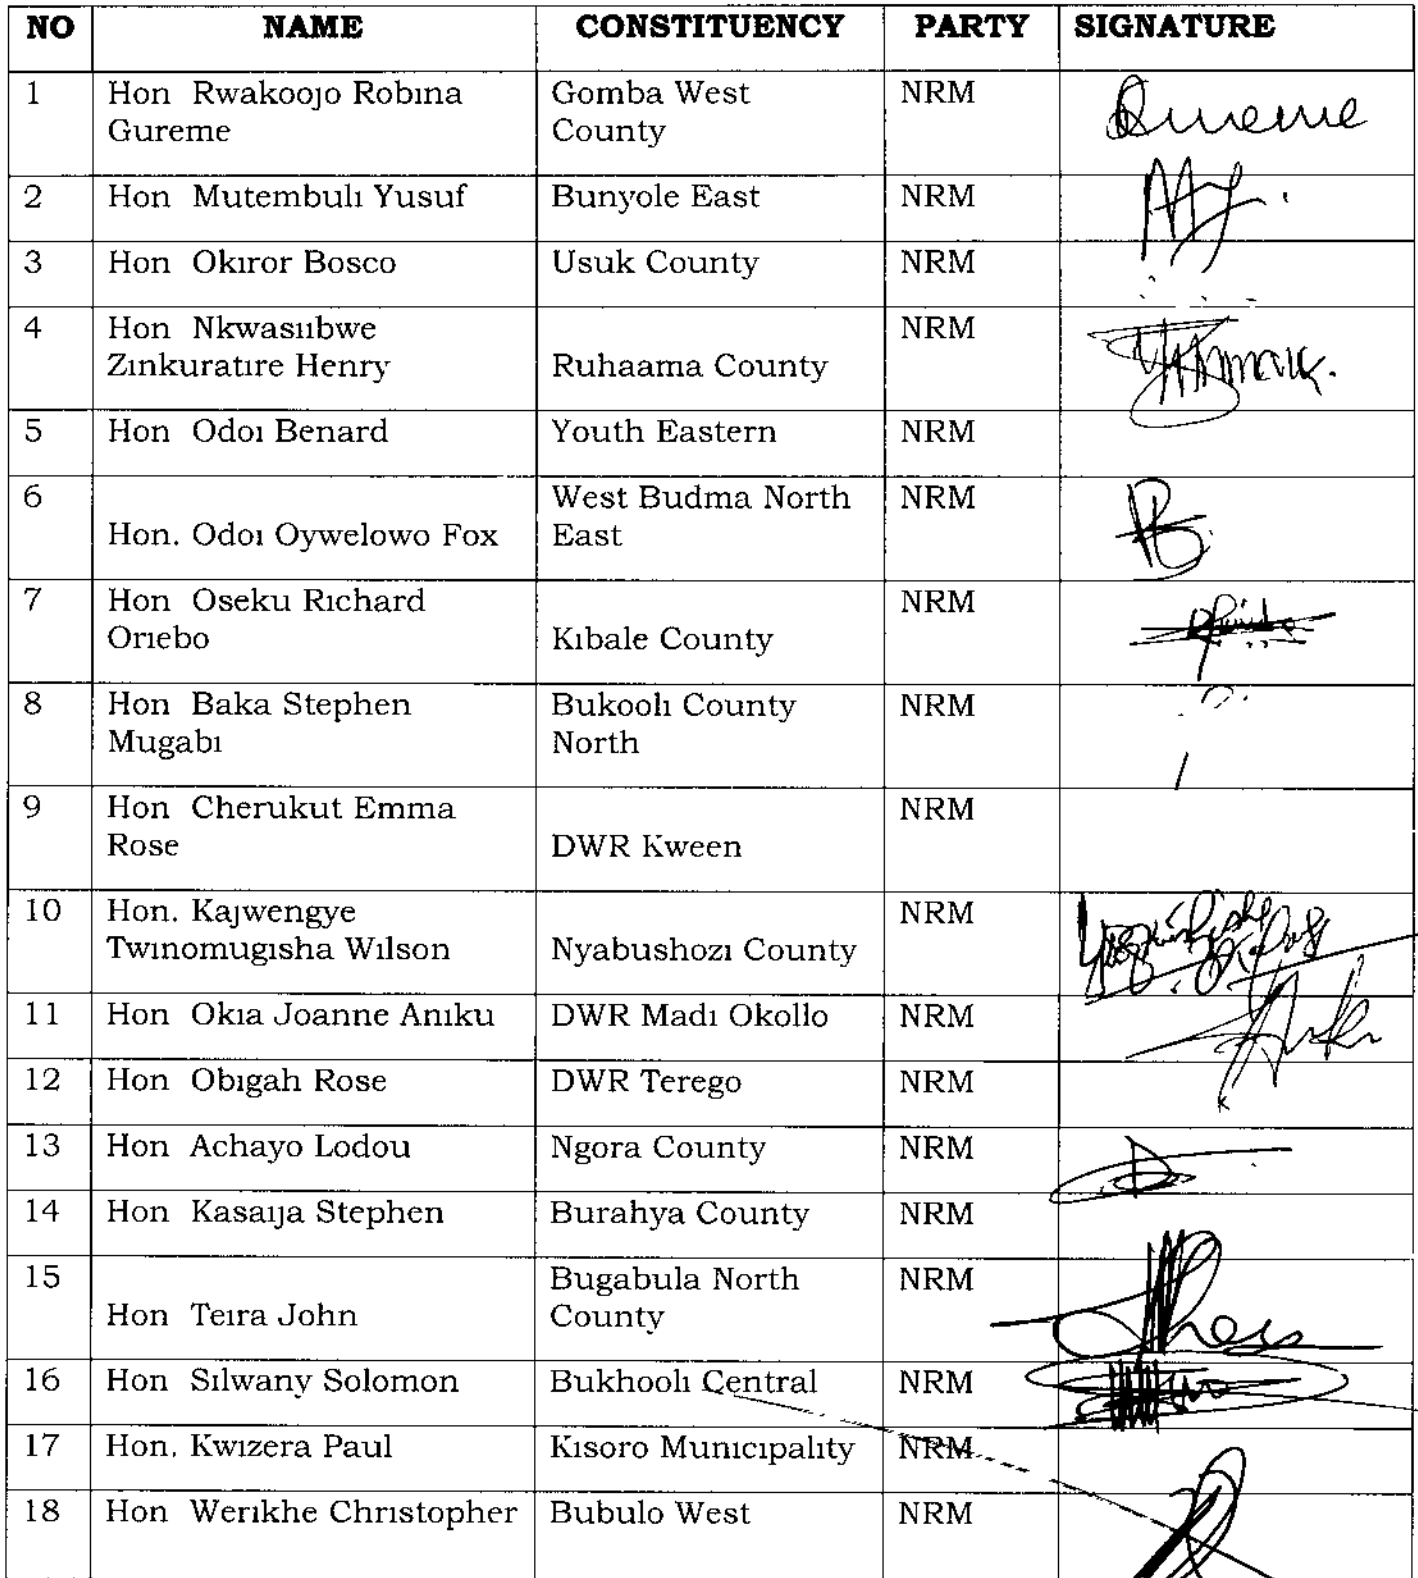 NO NAME CONSTITUENCY PARTY SIGNATURE
1 Hon Rwakoojo Robına Gomba West NRM
Gureme County
2 Hon Mutembulı Yusuf Bunyole East NRM
3 Hon Okıror Bosco Usuk County NRM
4 Hon Nkwasııbwe NRM
Zınkuratıre Henry Ruhaama County
5 Hon Odoı Benard Youth Eastern NRM
6 West Budma North NRM
Hon. Odoı Oywelowo Fox East
7 Hon Oseku Rıchard NRM
Orıebo Kıbale County
8 Hon Baka Stephen Bukoolı County NRM
Mugabı North
9 Hon Cherukut Emma NRM
Rose DWR Kween
10 Hon. Kajwengye NRM
Twınomugısha Wılson Nyabushozı County
11 Hon Okıa Joanne Anıku DWR Madı Okollo NRM
12 Hon Obıgah Rose DWR Terego NRM
13 Hon Achayo Lodou Ngora County NRM
14 Hon Kasaıja Stephen Burahya County NRM
15 Bugabula North NRM
Hon Teıra John County
16 Hon Sılwany Solomon Bukhoolı Central NRM
17 Hon. Kwızera Paul Kısoro Munıcıpalıty NRM
18 Hon Werıkhe Chrıstopher Bubulo West NRM